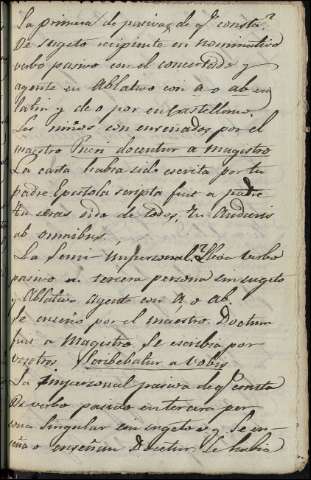 La primera de pasiva, de q.e consta?
De sugeto recipiente en nominativo
verbo pasivo con el concertado y
agente en Ablativo con a o ab en
latin y de o por en Castellano.
Los niños son enseñados por el
maestro Pueri docentur a magistro
La carta habia sido escrita por tu
padre Epistola scripta fuit a patre
tu seras oida de todos, tu Audieris
ab omnibus
La Semi impersonal? Lleva verbo
pasivo en tercera persona sin sugeto
y Ablativo Agente con A, o Ab.
Se enseñó por el maestro. Doctum
fuit a Magistro Se escribia por
vosotros. Scribebatur a Vobis
La impersonal pasiva de q.e consta
De verbo pasivo en tercera per
sona Singular sin sugeto v g Se en
seña o enseñan Docetur Se habia